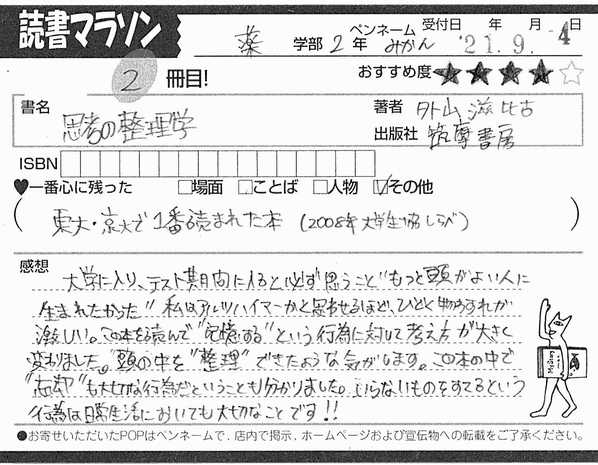 読書マラソン
薬 学部 2 年 ペンネーム みかん 受付日 '21年 9.月 4日
2 冊目!
おすすめ度 ★★★★☆
書名 思考の整理学
著者 外山滋比古
出版社 筑摩書房
ISBN
♥一番心に残った □場面 □ことば □人物 ☑その他
(東大・京大で1番読まれた本(2008年大学生協しらべ))
感想
大学に入り、テスト期間に入ると必ず思うこと"もっと頭がよい人に
生まれたかった"私はアルツハイマーかと思わせるほど、ひどく物わすれが
激しい。この本を読んで"記憶する"という行為に対して考え方が大きく
変わりました。頭の中を"整理"できたような気がします。この本の中で
"忘却"も大切な行為だということも分かりました。いらないものをすてるという
行為は日常生活においても大切なことです!!
●お寄せいただいたPOPはペンネームで、店内で掲示、ホームページおよび宣伝物への転載をご了承ください。